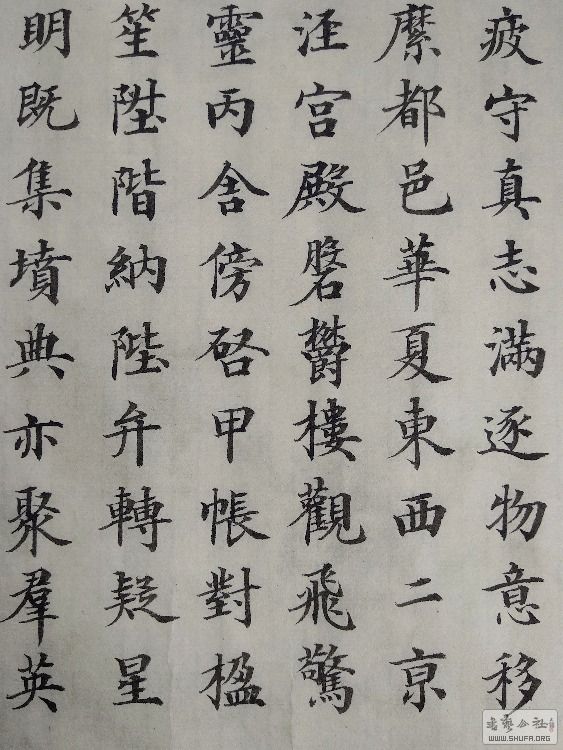 疲守真志滿逐物意移
縻都邑華夏東西二京
涇宮殿磐鬱樓觀飛驚
靈丙舍傍啓甲帳對楹
笙陞階納陛弁轉疑星
明既集墳典亦聚羣英
書藝公社
WWW.SHUFA.ORG